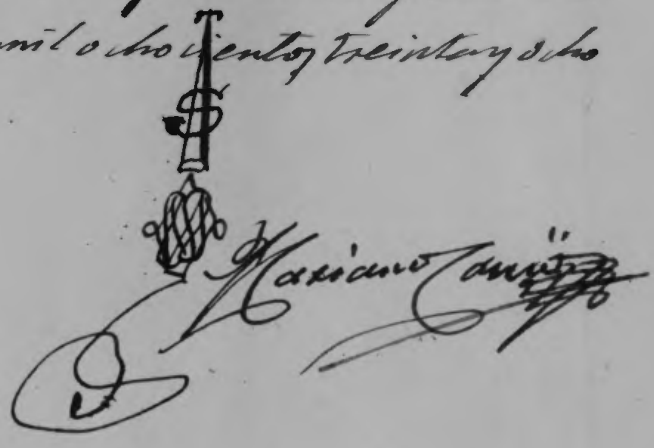 mil ochocientos treinta y ocho
S
Mariano